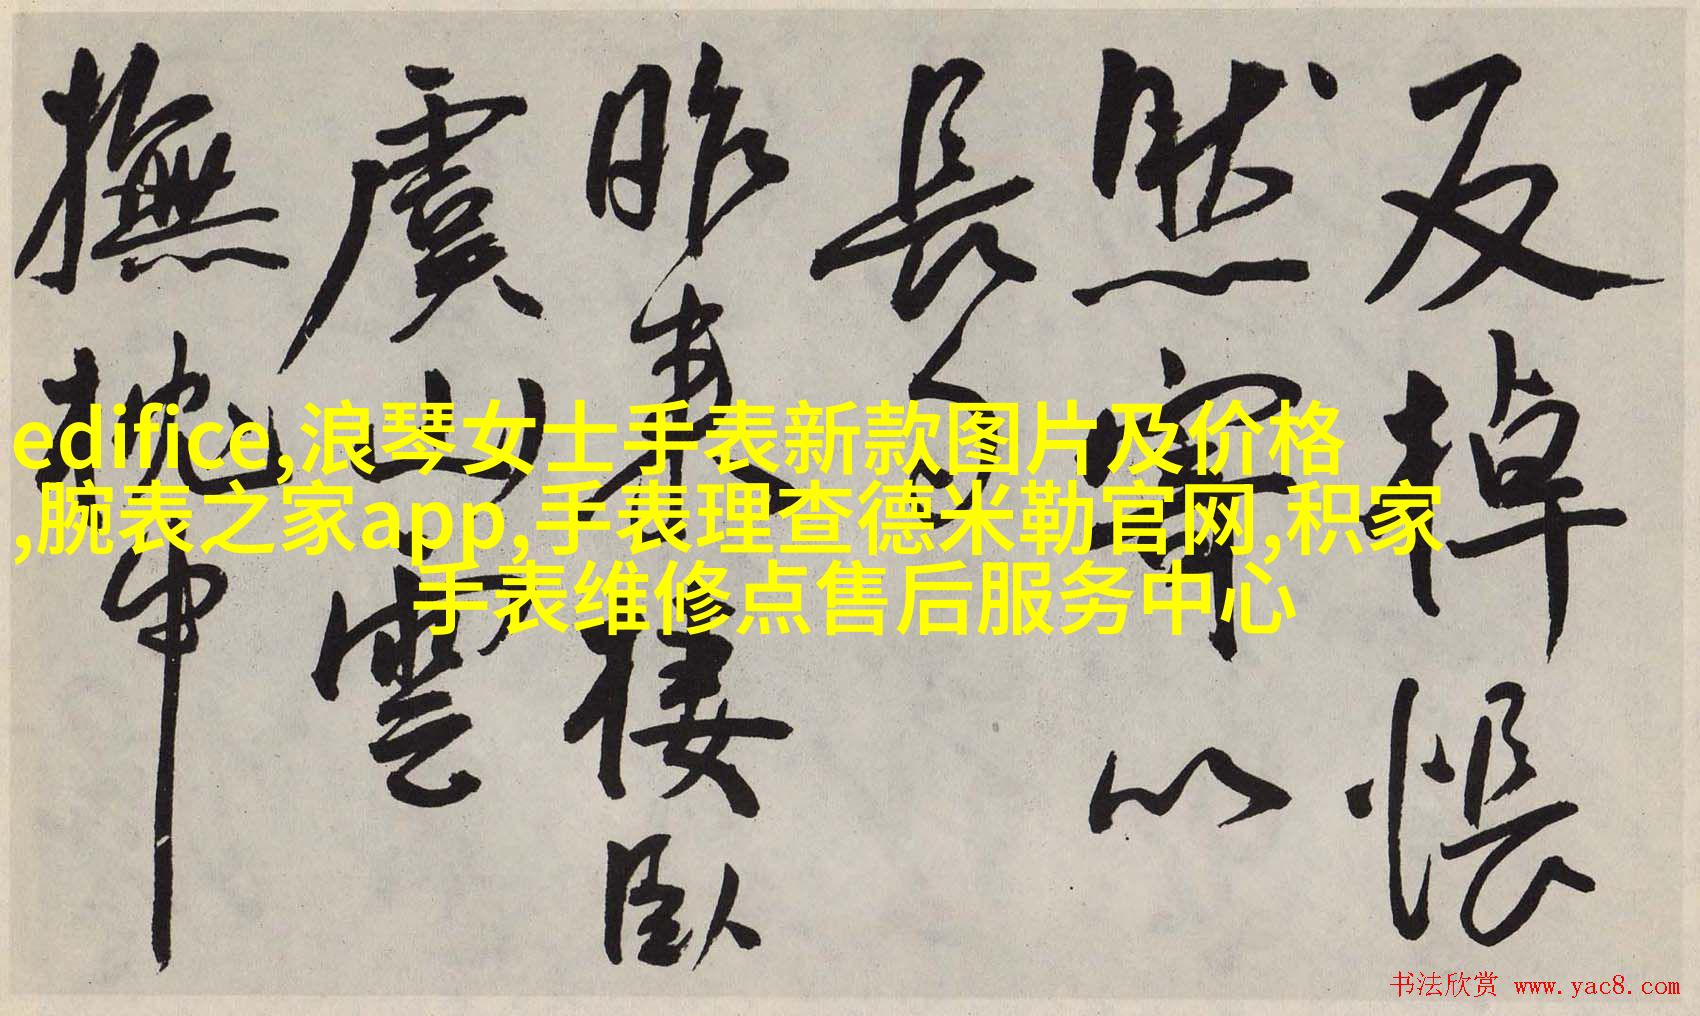 反棹悵
然以
長
昨来棲臥
虞山雲
撫枕中
edifice,浪琴女士手表新款图片及价格
,腕表之家app,手表理查德米勒官网,积家
手表维修点售后服务中心
书法欣赏 www.yac8.com